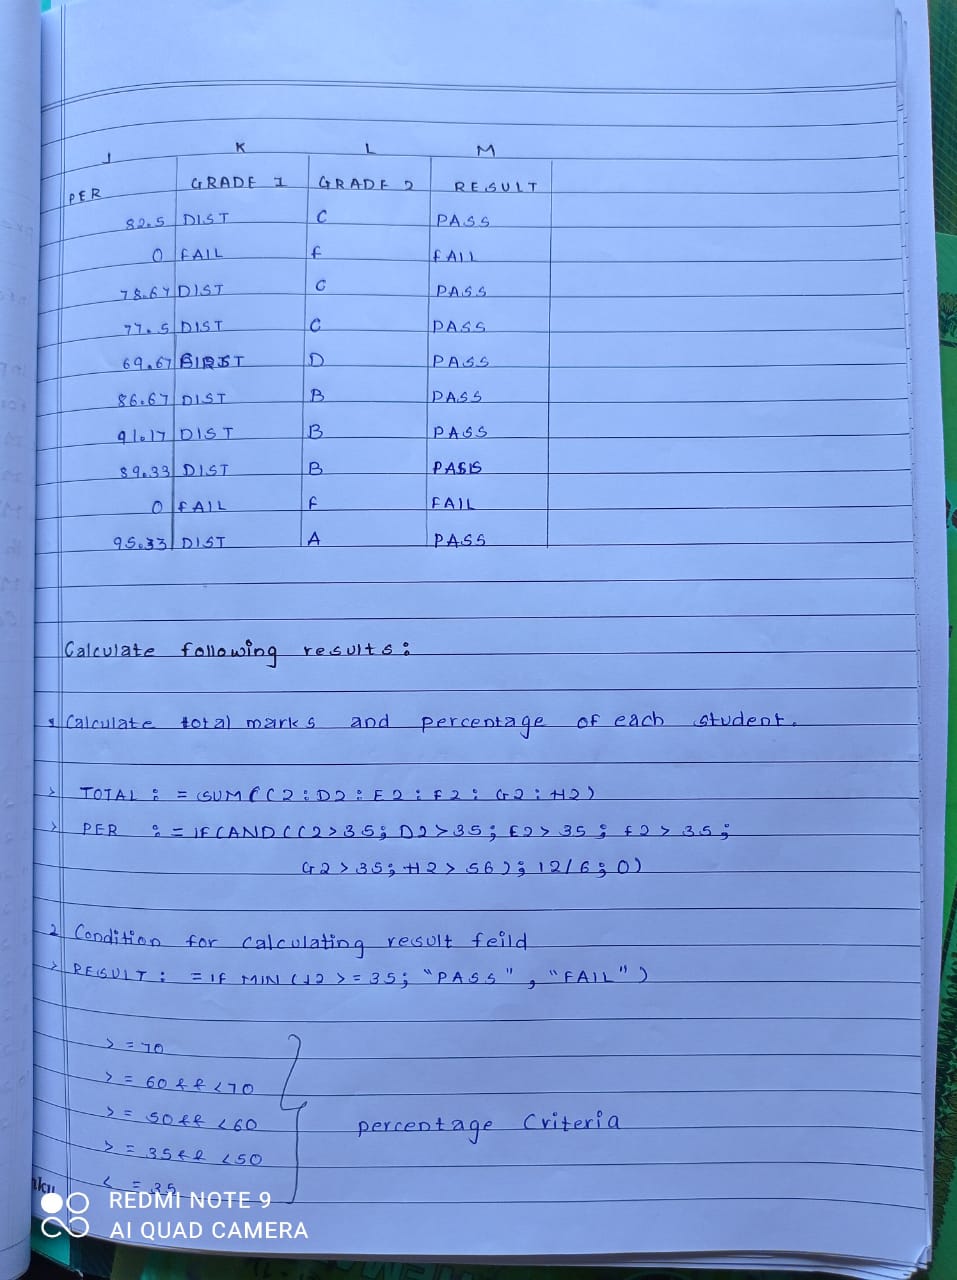 J K L M
PER GRADE 1 GRADE 2 RESULT
82.5 DIST C PASS
0 FAIL F FAIL
78.67 DIST C PASS
77.5 DIST C PASS
69.67 FIRST D PASS
86.67 DIST B PASS
91.17 DIST B PASS
89.33 DIST B PASS
0 FAIL F FAIL
95.33 DIST A PASS
Calculate following results:
Calculate total marks and percentage of each student.
> TOTAL : = SUM(C2:D2:E2:F2:G2:H2)
> PER : = IF(AND(C2>35; D2>35; E2>35; F2>35;
G2>35; H2>56); I2/6; 0)
2 Condition for calculating result feild
> RESULT : = IF MIN (J2 >= 35; "PASS", "FAIL")
>= 70
>= 60 && <70
>= 50 && <60
percentage Criteria
>= 35 && <50
< = 35
REDMI NOTE 9
AI QUAD CAMERA